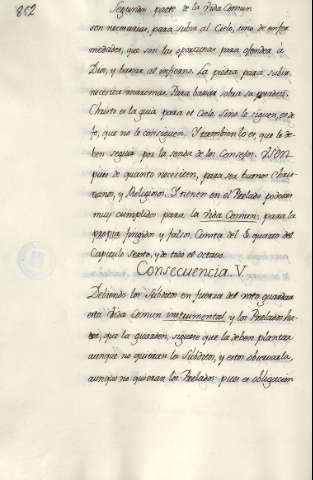 852
Segunda parte de la Vida Comun
son necesarias, para subir al Cielo, uno de enfer
medades, que son las ocasiones para ofender à
Dios, y baxar al infierno. La piedra para subir
necesita Para baxar sobra su
Christo es la guia para el Cielo. Sino le siguen, es de
fe, que no le consiguen. Y tambien lo es, que le de-
ben seguir por la senda de los Consejos.
pues de quanto necesiten, para ser buenos Chris-
tianos, y Religiosos. Y tienen en el Prelado poderes
muy cumplidos para la Vida Comun; para la
propria fingidos y falsos. Consta del §. quarto del
Capitulo sexto, y de todo el octavo.
Consecuencia. V.
Debiendo los Subditos en fuerza del voto guardar
esta Vida Comun instrumental, y los Prelados ha-
cer, que la guarden, siguese que la deben plantar
aunque no quieran los Subditos, y estos observarla,
aunque no quieran los Prelados: pues es obligacion